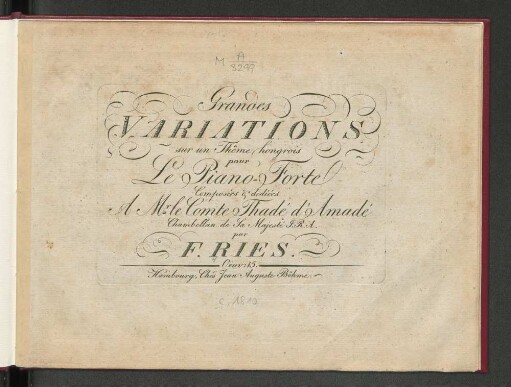 M A
9277
Grandes
VARIATIONS
sur un Thême hongrois
pour
Le Piano-Forte
Composées & dediées
A Mr. le Comte Thadé d'Amadé
Chambellan de Sa Majesté I.R.A.
par
F. RIES.
Oeuv: 15.
Hambourg, Chés Jean Auguste Böhme.
c. 1810